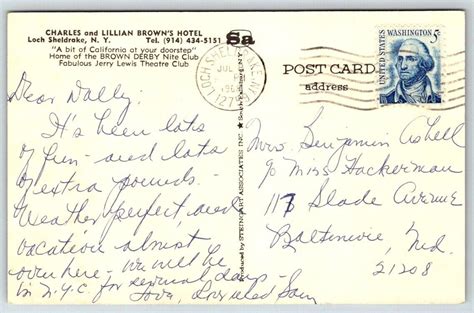 CHARLES and LILLIAN BROWN'S HOTEL
Loch Sheldrake, N. Y. Tel. (914) 434-5151
"A bit of California at your doorstep"
Home of the BROWN DERBY Nite Club
Fabulous Jerry Lewis Theatre Club
Sa
LOCH SHELDRAKE, N.Y.
WASHINGTON 5c
POST CARD
address
Produced by STEINGART ASSOCIATES INC.
Dear Dolly,
It's been lots
of fun - and lots
of extra pounds -
Weather perfect, and
vacation almost
over here - we will be
in N.Y.C. for several days -
Love, Lois and Sam
Mrs. Benjamin Asbell
c/o Miss Hackerman
117 Slade Avenue
Baltimore, Md.
21208